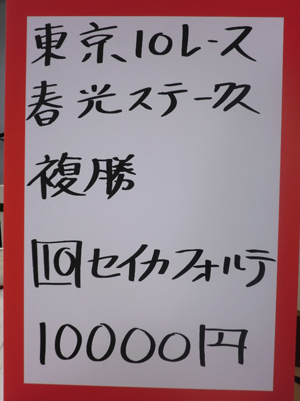 東京10レース
春光ステークス
複勝
10セイカフォルテ
10000円